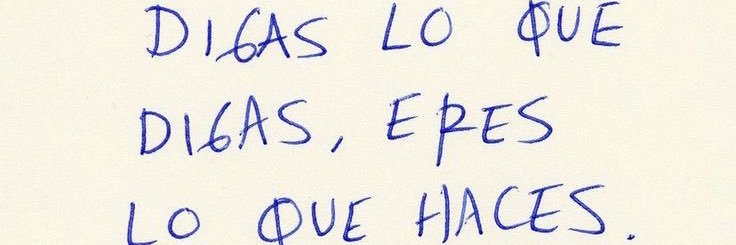 DIGAS LO QUE
DIGAS, ERES
LO QUE HACES.